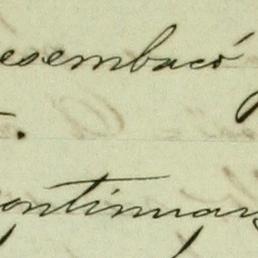 esembacó
ontinuan